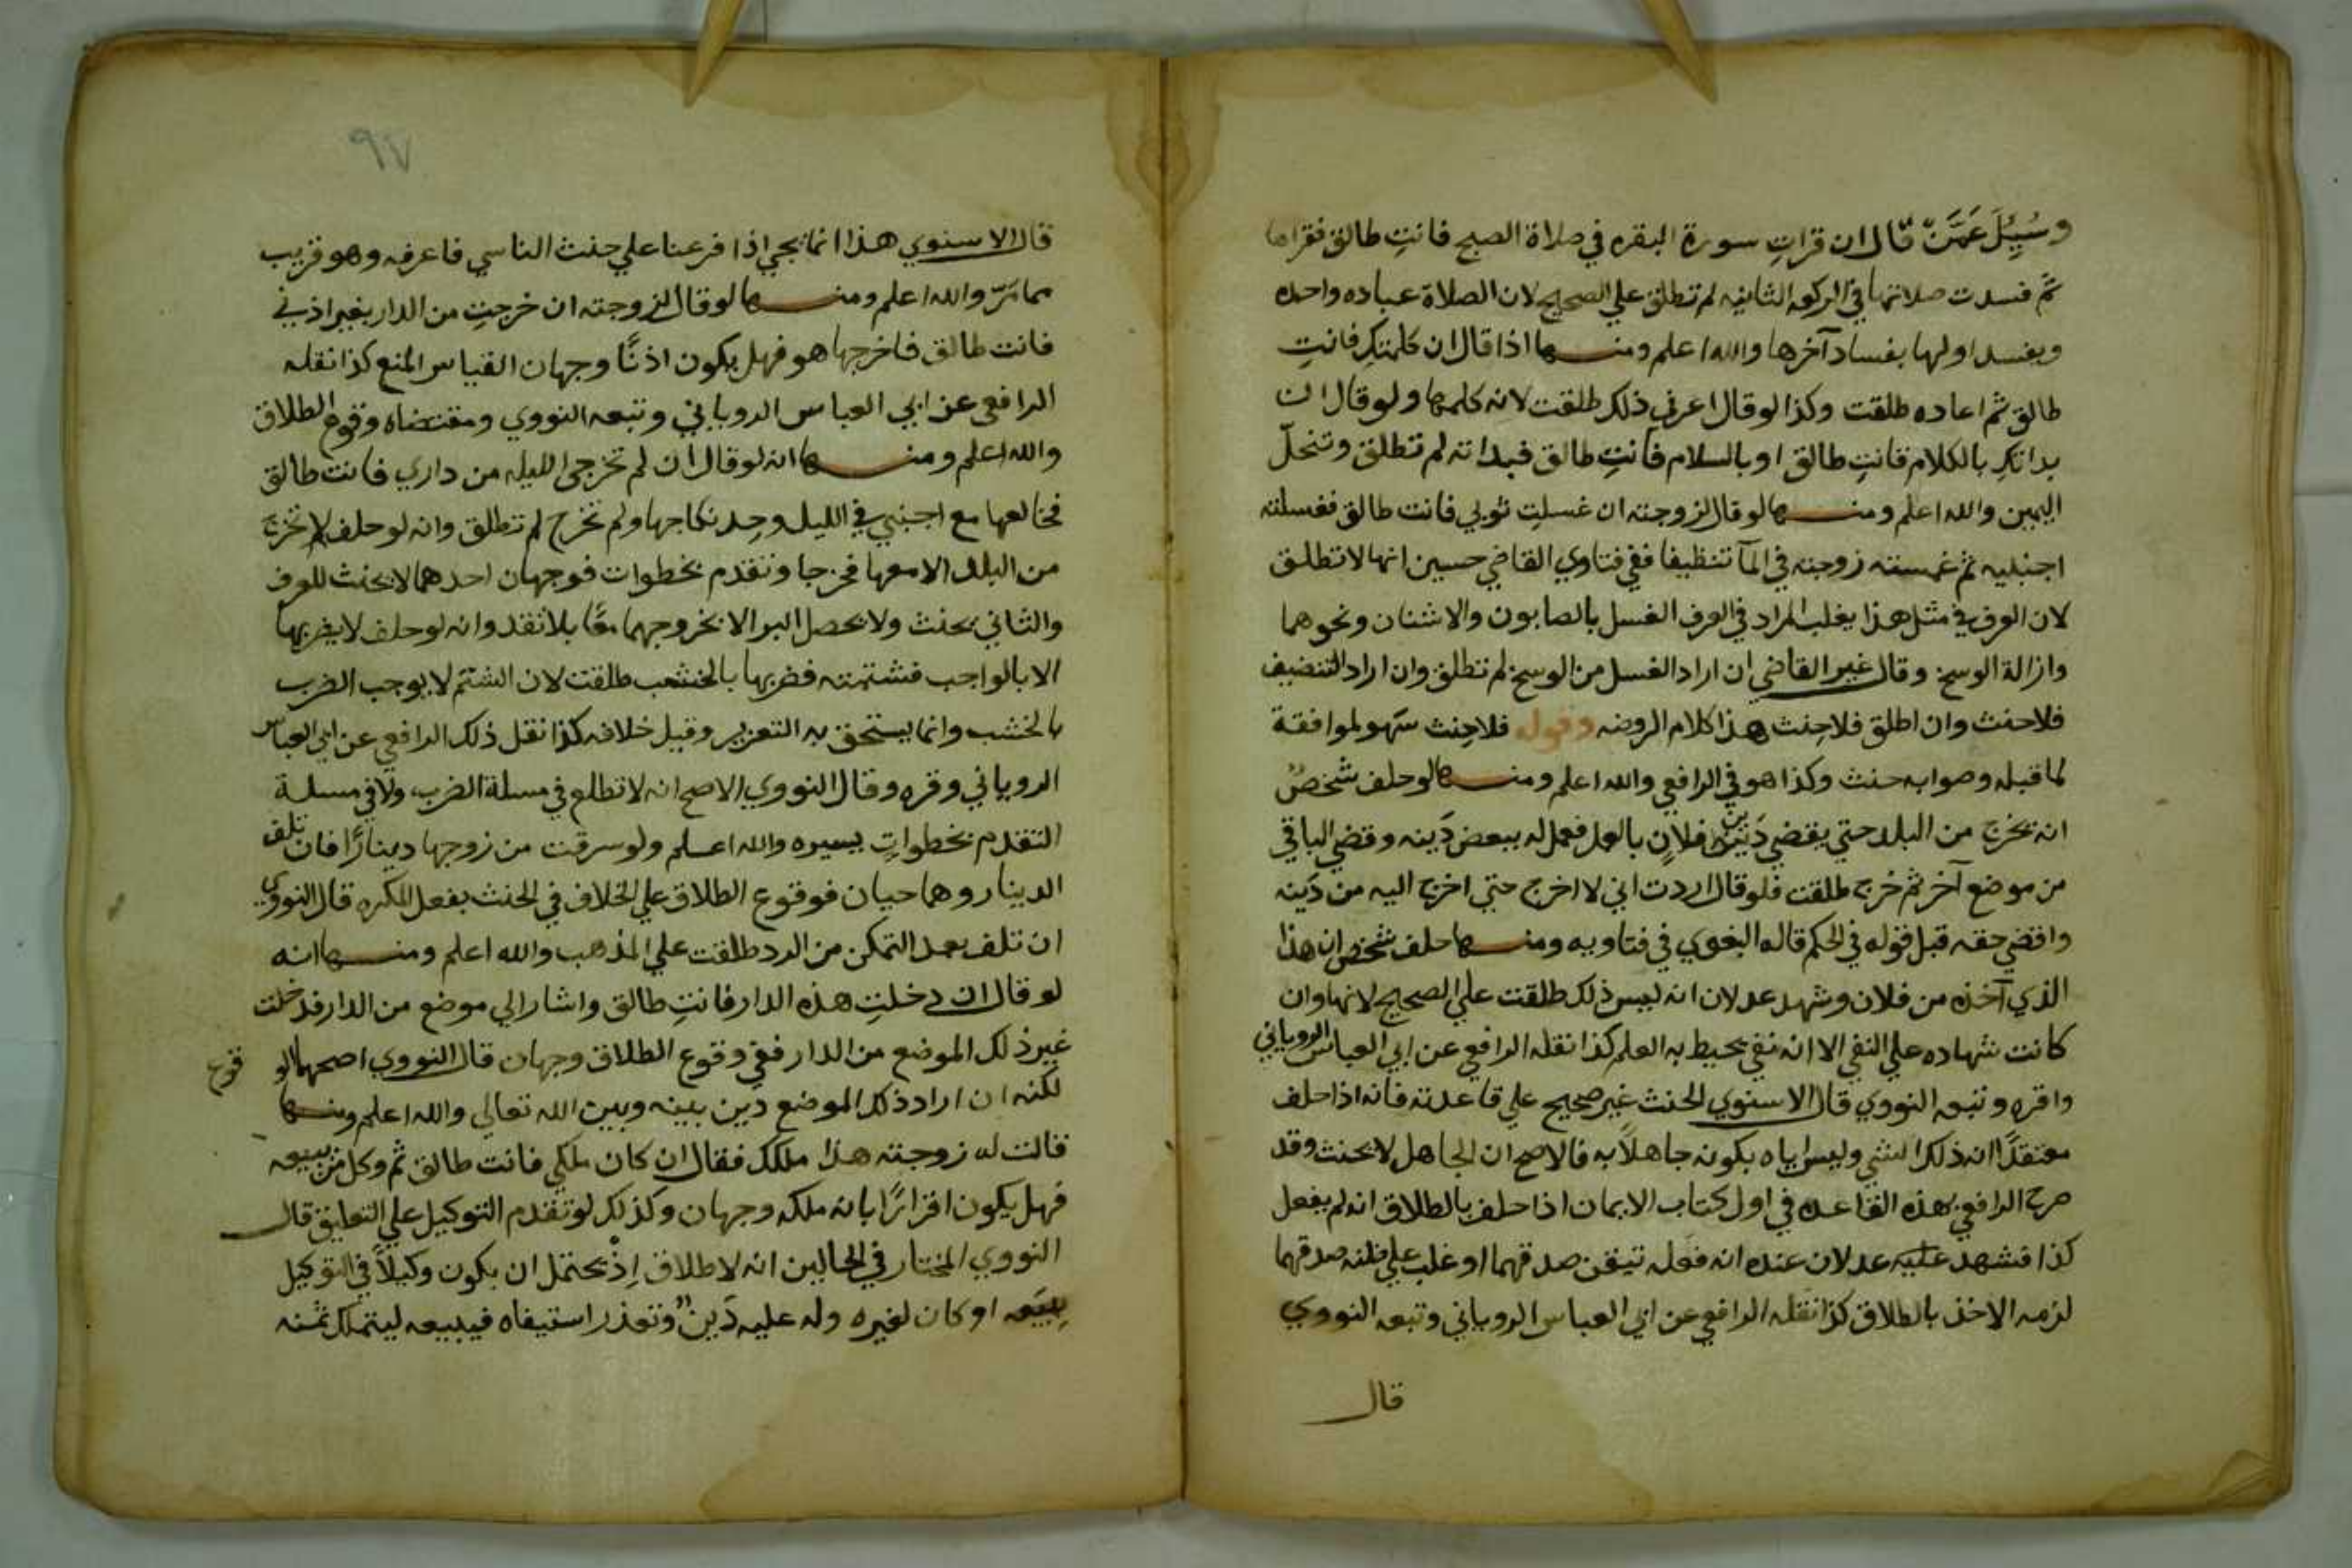 وسُئِلَ عَمَّنْ قال ان قرات سورة البقره في صلاة الصبح فانتِ طالق فقراها
ثم فسدت صلاتها في الركعه الثانيه لم تطلق علي الصحيح لان الصلاة عباده واحده
ويفسد اولها بفساد آخرها والله اعلم ومنها اذا قال ان كلمتكِ فانتِ
طالق ثم اعاده طلقت وكذا لو قال اعرفي ذلك طلقت لانه كلمها ولو قال ان
بداتكِ بالكلام فانتِ طالق او بالسلام فانتِ طالق فبداته لم تطلق وتنحلّ
اليمين والله اعلم ومنها لو قال لزوجته ان غسلتِ ثوبي فانت طالق فغسلته
اجنبيه ثم غمسته زوجته في المآ تنظيفا ففي فتاوي القاضي حسين انها لا تطلق
لان العرف في مثل هذا يغلب المراد في العرف الغسل بالصابون والاشنان ونحوهما
وازالة الوسخ وقال غير القاضي ان اراد الغسل من الوسخ لم تطلق وان اراد التنضيف
فلاحنث وان اطلق فلاحِنث هذا كلام الروضه وقوله فلاحِنث سَهو لموافقة
لما قبله وصوابه حنث وكذا هو في الرافعي والله اعلم ومنها لو حلف شخصٌ
انه يخرج من البلد حتي يقضي دَين فلانٍ بالعمل فعمل له ببعض دَينه وقضي الباقي
من موضع آخر ثم خرج طلقت فلو قال اردت اني لا اخرج حتي اخرج اليه من دَينه
واقضي حقه قبل قوله في الحكم قاله البغوي في فتاويه ومنها حلف شخص ان هذا
الذي آخذه من فلان وشهد عدلان انه ليس ذلك طلقت علي الصحيح لانها وان
كانت شهاده علي النفي الا انه نفي يحيط به العلم كذا نقله الرافعي عن ابي العباس الروياني
واقره وتبعه النووي قال الاسنوي الحنث غير صحيح علي قاعدته فانه اذا حلف
معتقدًا انه ذلك الشي وليس اياه يكون جاهلاً به فالاصح ان الجاهل لا يحنث وقد
صرح الرافعي بهذه القاعده في اول كتاب الايمان اذا حلف بالطلاق انه لم يفعل
كذا فشهد عليه عدلان عنده انه فعله تيقن صدقهما او غلب علي ظنه صدقهما
لزمه الاخذ بالطلاق كذا نقله الرافعي عن ابي العباس الروياني وتبعه النووي
قال
٩٧
قال الاسنوي هذا انما يجي اذا فرعنا علي حنث الناسي فاعرفه وهو قريب
مما مَرّ والله اعلم ومنها لو قال لزوجته ان خرجتِ من الدار بغير اذني
فانت طالق فاخرجها هو فهل يكون اذنًا وجهان القياس المنع كذا نقله
الرافعي عن ابي العباس الروياني وتبعه النووي ومقتضاه وقوع الطلاق
والله اعلم ومنها انه لو قال ان لم تخرجي الليله من داري فانت طالق
فخالعها مع اجنبي في الليل وجدد نكاجها ولم تخرج لم تطلق وانه لو حلف لا تخرج
من البلد الا معها فخرجا وتقدم بخطوات فوجهان احدهما لا يحنث للعرف
والثاني يحنث ولا يحصل البر الا بخروجهما معًا بلا تقد وانه لو حلف لا يضربها
الا بالواجب فشتمته فضربها بالخشب طلقت لان الشتم لا يوجب الضرب
بالخشب وانما يستحق به التعزير وقيل خلافه كذا نقل ذلك الرافعي عن ابي العباس
الروياني وقره وقال النووي الاصح انه لا تطلع في مسلة الضرب ولا في مسلة
التقدم بخطواتٍ يسيره والله اعلم ولو سرقت من زوجها دينارًا فان تلف
الدينار وهما حيان فوقوع الطلاق علي الخلاف في الحنث بفعل المكره قال النووي
ان تلف بعد التمكن من الرد طلقت علي المذهب والله اعلم ومنها انه
لو قال ان دخلتِ هذه الدار فانتِ طالق واشار الي موضع من الدار فدخلت
غير ذلك الموضع من الدار ففي وقوع الطلاق وجهان قال النووي اصحهما الو
قوع
لكنه ان اراد ذلك الموضع دين بينه وبين الله تعالي والله اعلم ومنها
قالت له زوجته هذا ملكك فقال ان كان ملكي فانت طالق ثم وكل من يبيعه
فهل يكون اقرارًا بانه ملكه وجهان وكذلك لو تقدم التوكيل علي التعليق قال
النووي المختار في الحالين انه لا طلاق اِذْ يحتمل ان يكون وكيلاً في التوكيل
بِبَيعه او كان لغيره وله عليه دَينٌ وتعذر استيفاه فيبيعه ليتملك ثمنه